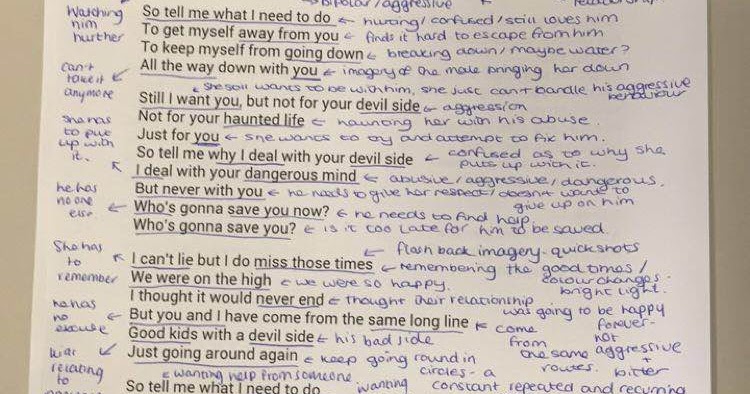 bipolar/aggressive
watching him hurther
So tell me what I need to do ← hurting/confused/still loves him
To get myself away from you ← finds it hard to escape from him
To keep myself from going down ← breaking down/maybe water?
can't take it anymore
All the way down with you ← imagery of the male bringing her down
she still wants to be with him, she just can't handle his aggressive behaviour
Still I want you, but not for your devil side ← aggression
she has to put up with it.
Not for your haunted life ← haunting her with his abuse.
Just for you ← she wants to try and attempt to fix him.
So tell me why I deal with your devil side ← confused as to why she puts up with it.
I deal with your dangerous mind ← abusive/aggressive/dangerous.
he has no one else
But never with you ← he needs to give her respect/doesn't want to give up on him
Who's gonna save you now? ← he needs to find help.
Who's gonna save you? ← is it too late for him to be saved.
She has to remember
← flash back imagery - quick shots
I can't lie but I do miss those times ← remembering the good times/ colour changes - bright light.
We were on the high ← we were so happy.
I thought it would never end ← thought their relationship was going to be happy forever-
he has no excuse
But you and I have come from the same long line ← come from the same routes. not aggressive + bitter
Good kids with a devil side ← his bad side
war relating to
Just going around again ← keep going round in circles - a constant repeated and recurring
← wanting help from someone
So tell me what I need to do wanting